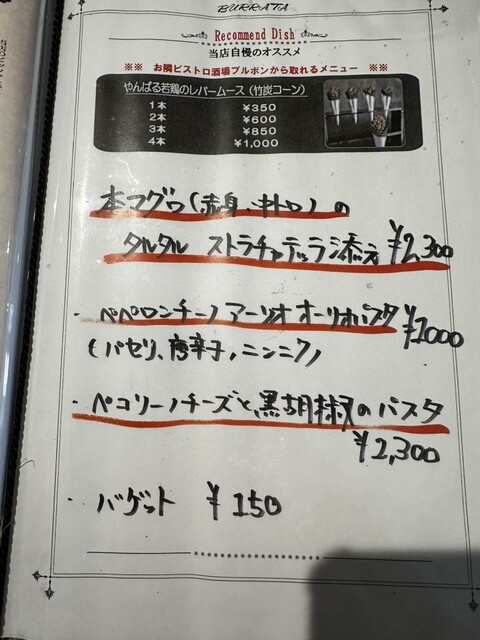 BURRATA
Recommend Dish
当店自慢のオススメ
※※ お隣ビストロ酒場ブルボンから取れるメニュー ※※
やんばる若鶏のレバームース（竹炭コーン）
1本 ¥350
2本 ¥600
3本 ¥850
4本 ¥1,000
本マグロ(赤身、中トロ)の
タルタル ストラチャテッラ添え ¥2,300
・ペペロンチーノ アーリオ オーリオパスタ ¥2000
(パセリ、唐辛子、ニンニク)
・ペコリーノチーズと、黒胡椒のパスタ
¥2,300
・バゲット ¥150